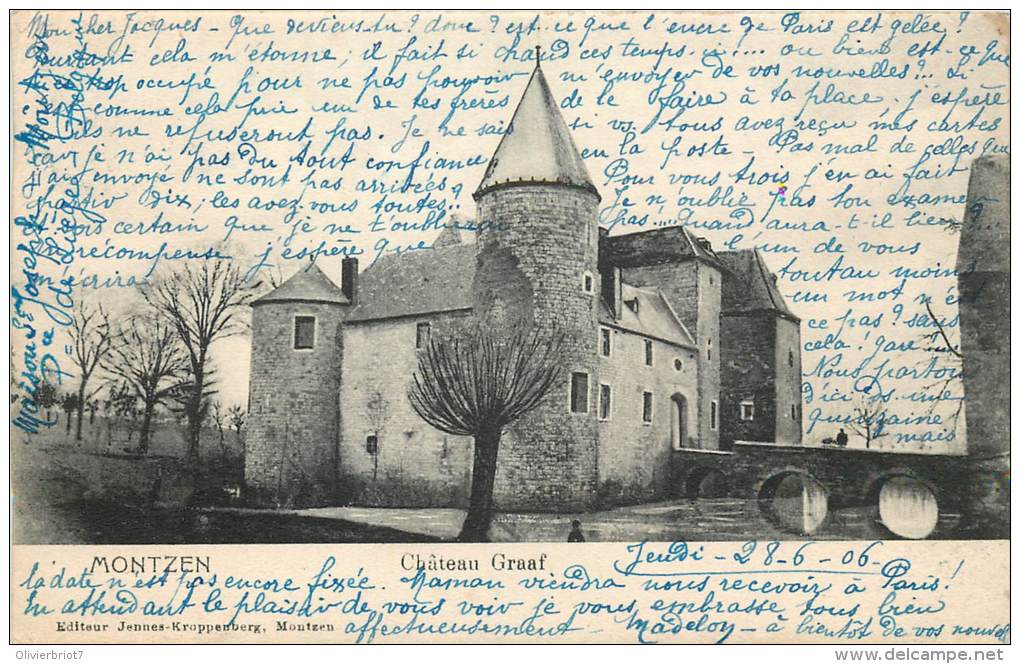 Mon cher Jacques - Que deviens-tu? donc? est-ce que l'encre de Paris est gelée?
Pourtant cela m'étonne, il fait si chaud ces temps-ci.... ou bien est-ce que
trop occupé pour ne pas pouvoir m'envoyer de vos nouvelles?.. Si
c'est comme cela prie un de tes frères de le faire à ta place, j'espère
qu'ils ne refuseront pas. Je ne sais si vs. tous avez reçu mes cartes
car je n'ai pas du tout confiance en la poste - Pas mal de celles que
j'ai envoyé ne sont pas arrivées. Pour vous trois j'en ai fait
partir dix; les avez-vous toutes.. Je n'oublie pas ton examen
sois certain que je ne t'oublierai pas.... quand aura-t-il lieu?
En récompense j'espère que l'un de vous
m'écrira tout au moins
un mot n'est
ce pas? sans
cela! gare!....
Nous partons
d'ici dans une
quinzaine
mais
Maison St Joseph à Montzen
Par de Liège Belgique
MONTZEN Château Graaf Jeudi - 28-6-06.
la date n'est pas encore fixée. Maman viendra nous recevoir à Paris!
En attendant le plaisir de vous voir je vous embrasse tous bien
Editeur Jennes-Kroppenberg, Montzen affectueusement - Madeloy - à bientôt de vos nouvell
Copyright Olivierbriot7 pour www.delcampe.net